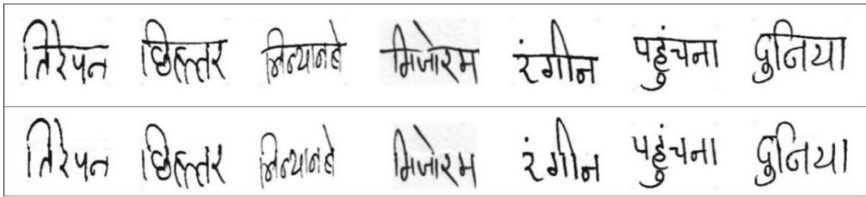 तिरेपन छिहत्तर निन्यानबे मिजोरम रंगीन पहुंचना दुनिया
तिरेपन छिहत्तर निन्यानबे मिजोरम रंगीन पहुंचना दुनिया